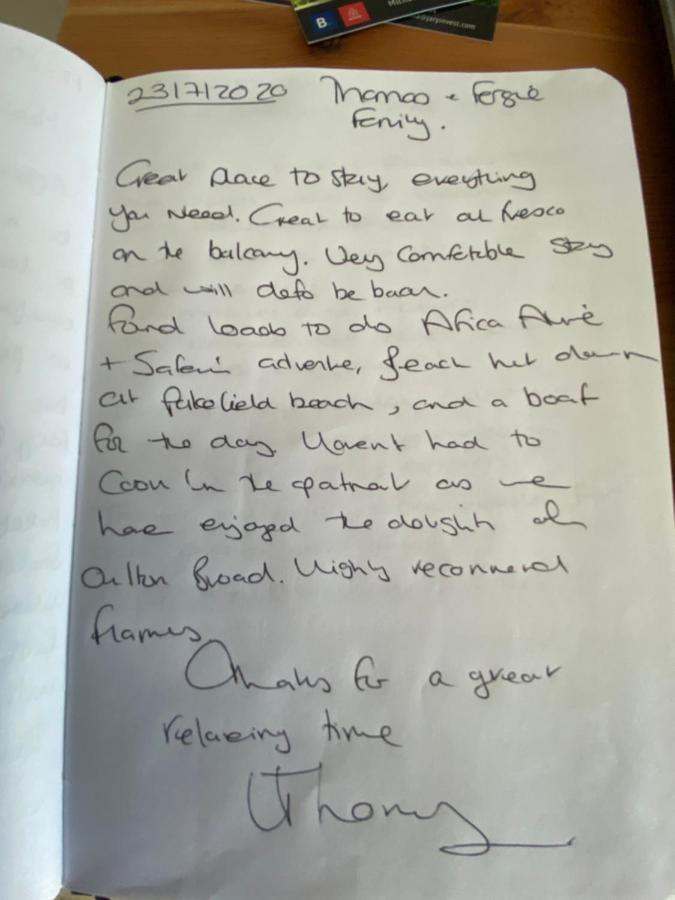 B.
@jaryinvest.com
23/7/2020 Thomas + Fergie
Family.
Great place to stay, everything
you need. Great to eat al fresco
on the balcony. Very comfetable stay
and will defo be back.
Found loads to do Africa Alive
+ Safari adventure, beach hut down
at pakefield beach, and a boat
for the day. Havent had to
Cook in the apartment as we
have enjoyed the delights of
Oulton Broad. Highly recommend
flames.
Thanks for a great
relaxing time
Thomas